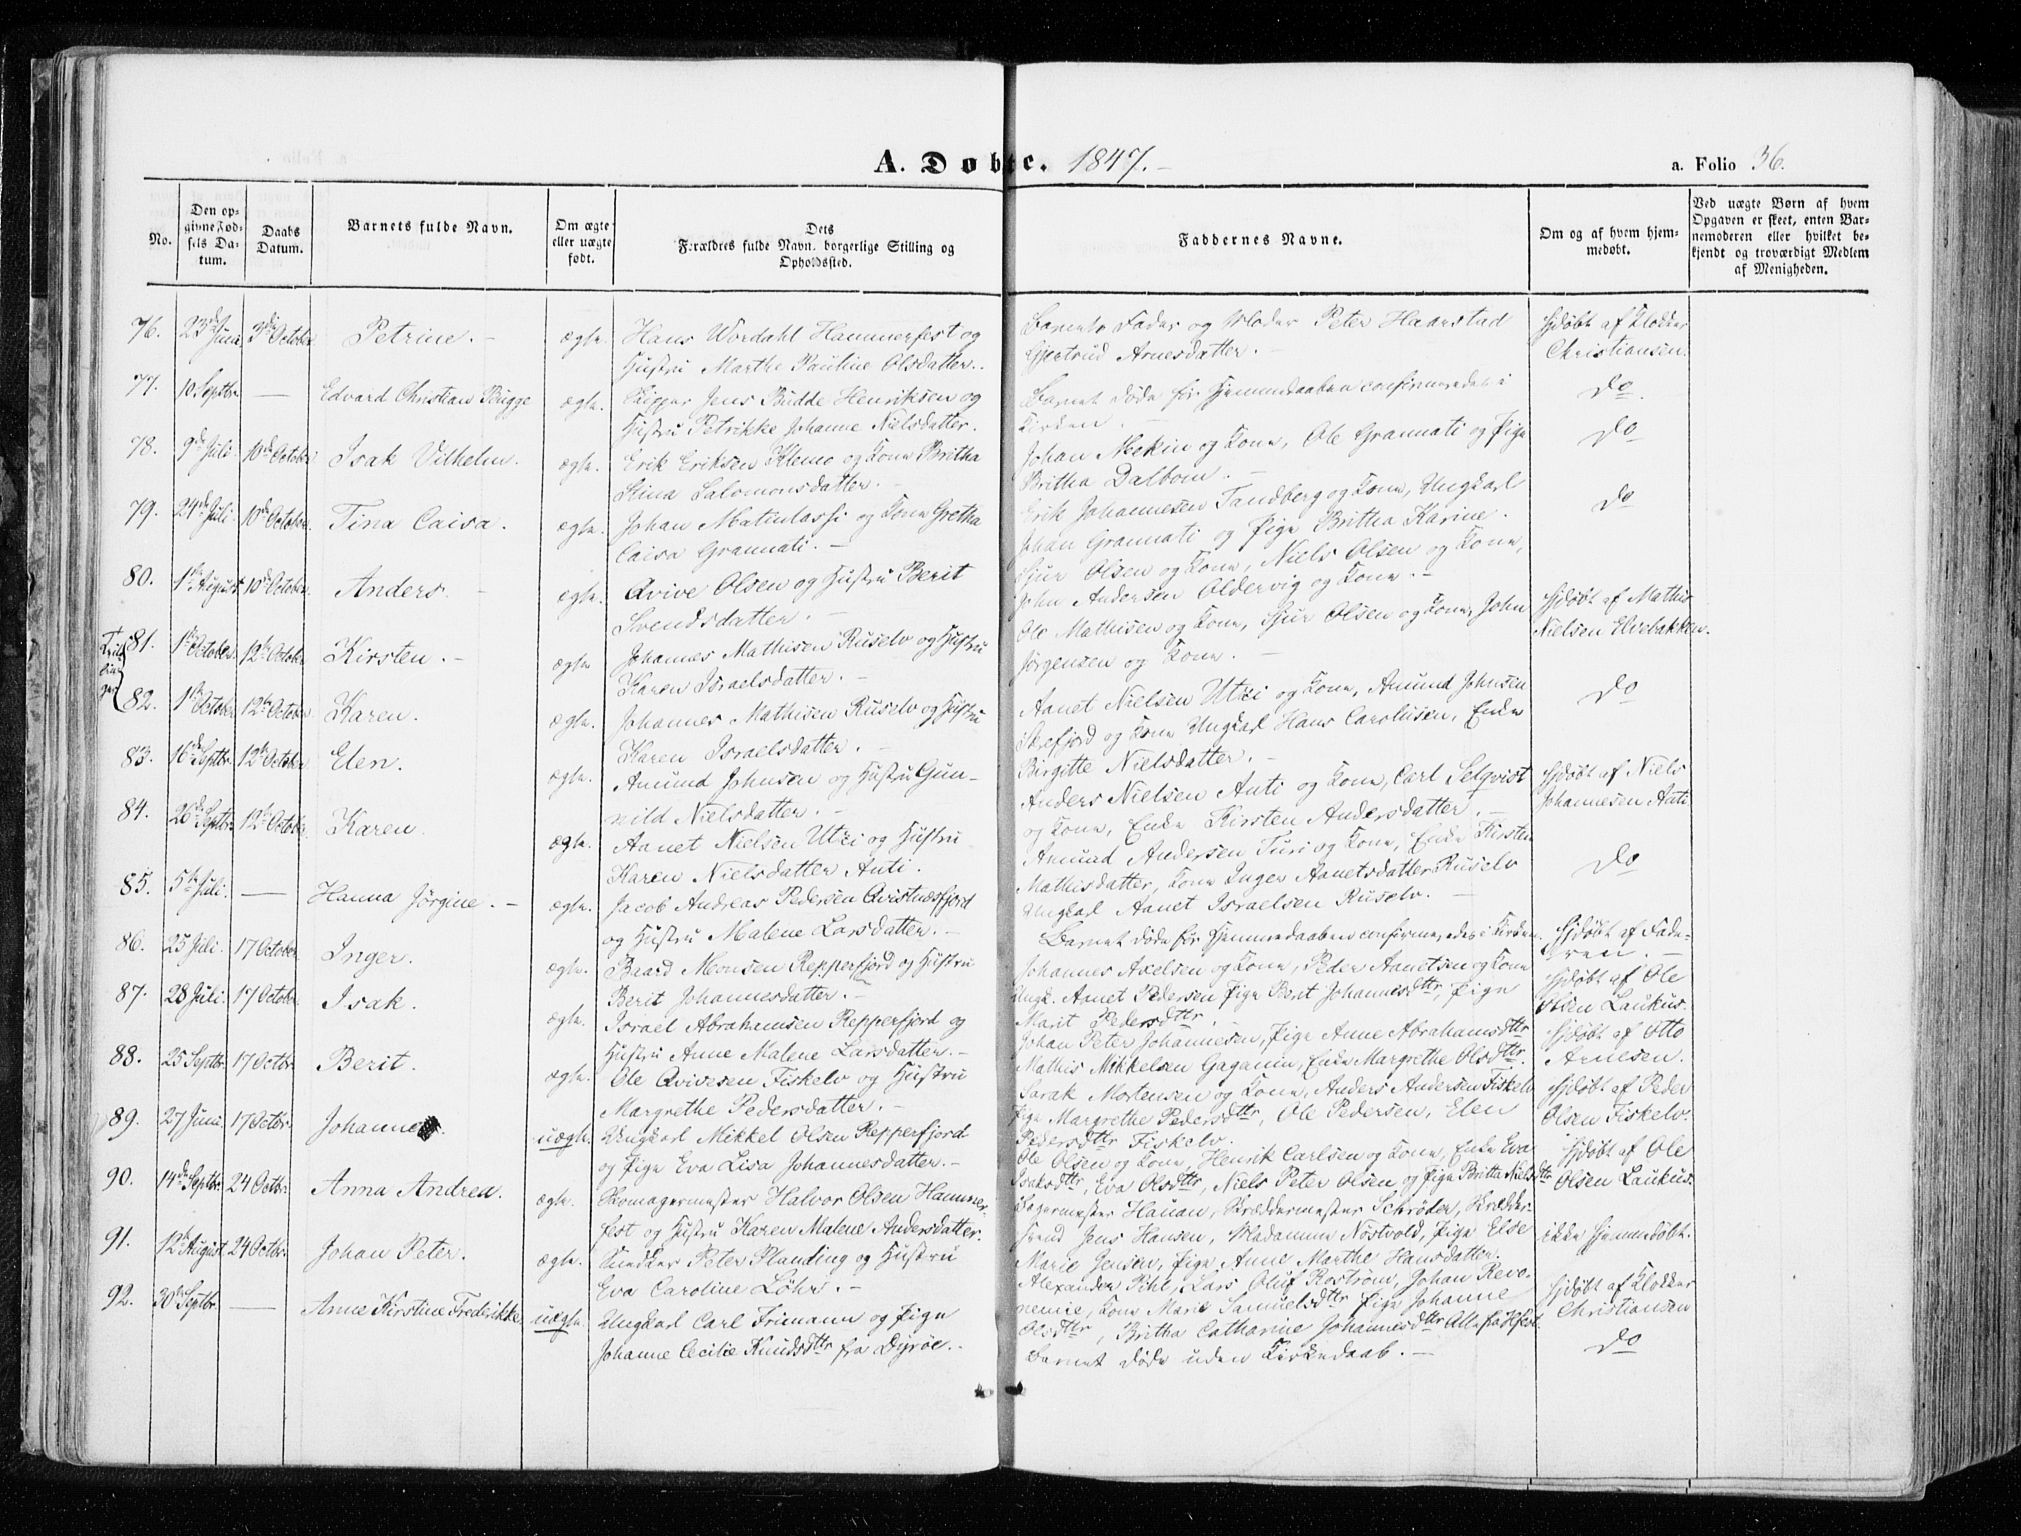 A. Døbte. 1847.-
a. Folio 36.
No.
Den opgivne Fødsels Datum.
Daabs Datum.
Barnets fulde Navn.
Om ægte eller uægte født.
Dets Forældres fulde Navn, borgerlige Stilling og Opholdssted.
Faddernes Navne.
Om og af hvem hjemmedøbt.
Ved uægte Børn af hvem Opgaven er skeet, enten Barnemoderen eller hvilket bekjendt og troværdigt Medlem af Menigheden.
76. 23de Juni 3die October Petrine. - ægte. Hans Wordahl Hammerfest og
Hustru Marthe Pauline Olsdatter.
Barnets Fader og Moder Peter Haarstad
Gjertrud Arnesdatter. -
Hjdøbt af Klokker
Christiansen.
77. 10 Septbr. — Edvard Christian Bugge ægte. Skipper Jens Budde Henriksen og
Hustru Petrikke Johanne Nielsdatter.
Barnet døde før Hjemmedaaben confirmeredes i
Kirken. -
Do.
78. 9de Juli 10de October Isak Vilhelm. ægte. Erik Eriksen Klemo og Kone Britha
Stina Salomonsdatter. -
Johan Mokin og Kone, Ole Grannati og Pige
Britha Dalbom. -
Do
79. 24de Juli 10de October Tina Caisa. ægte. Johan Matinlassi og Kone Gretha
Caisa Grannati. -
Erik Johannesen Tandberg og Kone, Ungkarl
Johan Grannati og Pige Britha Karine.
Do
80. 1ste August 10de October Anders. - ægte. Qvive Olsen og Hustru Berit
Svendsdatter. -
Sjur Olsen og Kone, Niels Olsen og Kone,
John Andersen Oldervig og Kone. -
Hjdøbt af Mathis
Nielsen Elvebakken.
Tvillinger
81. 1ste October 12te October Kirsten. - ægte Johannes Mathisen Ruselv og Hustru
Karen Israelsdatter. -
Ole Mathisen og Kone, Sjur Olsen og Kone, John
Jørgensen og Kone. -
82. 1ste October 12te October Karen. ægte. Johannes Mathisen Ruselv og Hustru
Karen Israelsdatter. -
Aanet Nielsen Utsi og Kone, Amund Johnsen
Skrefjord og Kone Ungkarl Hans Carolusen, Enke
Birgitte Nielsdatter. -
Do
83. 16de Septbr. 12te October Elen. ægte. Amund Johnsen og Hustru Gun-
nild Nielsdatter. -
Anders Nielsen Anti og Kone, Carl Selqvist
og Kone, Enke Kirsten Andersdatter. -
Hjdøbt af Niels
Johannesen Anti
84. 26de Septbr. 12te October Karen. ægte. Aanet Nielsen Utsi og Hustru
Karen Nielsdatter Anti.
Amund Andersen Turi og Kone, Enke Kirsten
Mathisdatter, Kone Inger Aanetsdatter Ruselv
Ungkarl Aanet Israelsen Ruselv. -
Do
85. 5te Juli. — Hanna Jörgine. - ægte. Jacob Andreas Pedersen Qvistnæsfjord
og Hustru Malene Larsdatter. -
Barnet døde før Hjemmedaaben confirmeredes i Kirken.
Hjdøbt af Fade-
ren. -
86. 25 Juli. 17 October. Inger. ægte. Baard Monsen Repperfjord og Hustru
Berit Johannesdatter. -
Johannes Axelsen og Kone, Peder Aanetsen og Kone
Ungk. Aanet Pedersen Pige Berit Johannesdttr, Pige
Marit Pedersdttr. -
Hjdøbt af Ole
Olsen Laukus.
87. 28 Juli. 17 October. Isak. ægte. Israel Abrahamsen Repperfjord og
Hustru Anne Malene Larsdatter. -
Johan Peter Johannesen, Pige Anne Abrahamsdttr
Mathis Mikkelsen Gagamin, Enke Margrethe Olsdttr.
Hjdøbt af Otto
Arnesen.
88. 25 Septbr. 17 Octbr. Berit. ægte. Ole Qvivesen Fiskelv og Hustru
Margrethe Pedersdatter. -
Sarak Mortensen og Kone, Anders Andersen Fiskelv
Pige Margrethe Pedersdttr, Ole Pedersen, Elen
Pedersdttr Fiskelv.
Hjdøbt af Peder
Olsen Fiskelv.
89. 27 Juni. 17 Octbr. Johannes. uægte. Ungkarl Mikkel Olsen Repperfjord
og Pige Eva Lisa Johannesdatter. -
Ole Olsen og Kone, Henrik Carlsen og Kone, Enke Eva
Isaksdttr, Eva Olsdttr, Niels Peter Olsen og Pige Britta Nielsdttr
Hjdøbt af Ole
Olsen Laukus.
90. 14de Septbr. 24 Octbr. Anna Andrea. ægte. Skomagermester Halvor Olsen Hammer-
fest og Hustru Karen Malene Andersdatter.
Bagermester Hauan, Skræddermester Schröder, Skrædder-
svend Jens Hansen, Madamme Nöstvold, Pige Else
Marie Jensen, Pige Anne Marthe Hansdatter.
ikke Hjemmedøbt.
91. 12te August 24 Octbr. Johan Peter. ægte. Snedker Peter Planding og Hustru
Eva Caroline Löhr. -
Alexander Pihl, Lars Oluf Roström, Johan Revo-
nemie, Kone Marie Samuelsdttr Pige Johanne
Olsdttr, Britha Catharine Johannesdttr Alle fra Hfest.
Hjdøbt af Klokker
Christiansen
92. 30te Septbr. — Anne Kirstine Fredrikke. uægte. Ungkarl Carl Frimann og Pige
Johanne Cecilie Knudsdttr fra Dyröe. -
Barnet døde uden Kirkedaab. -
Do